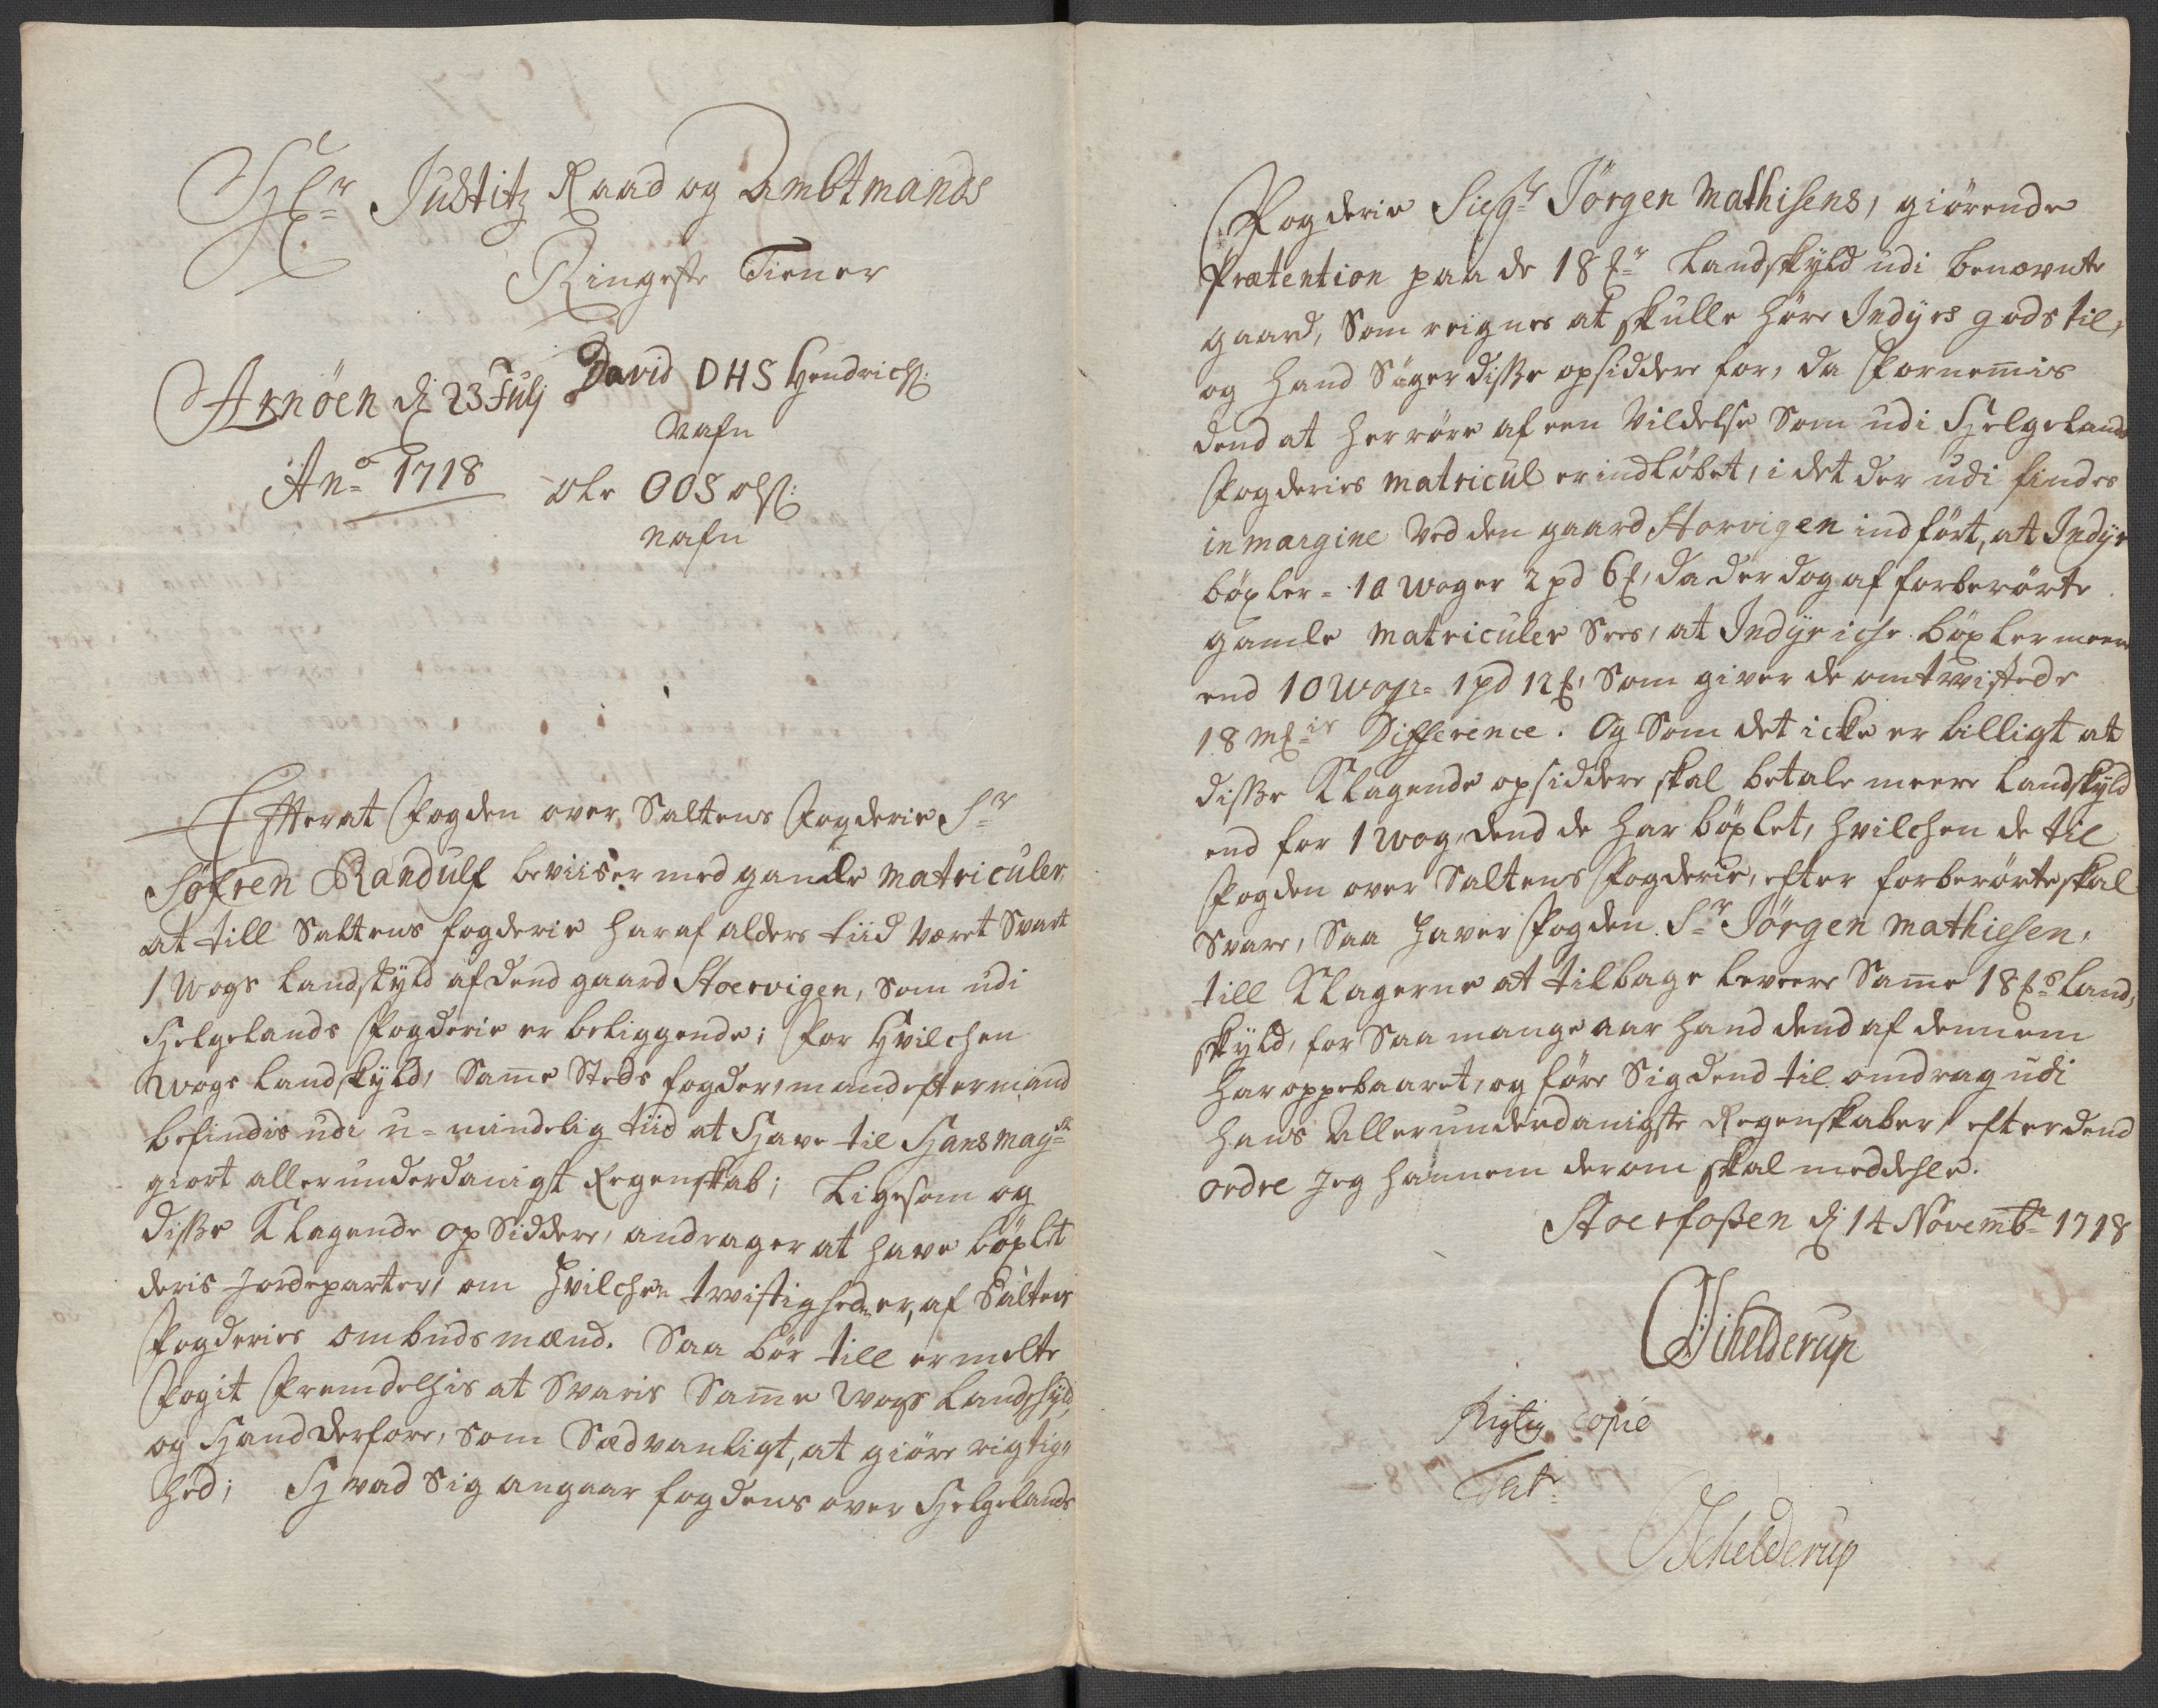 Hr Justitz Raad og Ambtmands
Ringeste Tiener
Arnöen d: 23 Julj David DHS Hendrichs:
Nafn
Ano 1718 Ole OOS ols:
nafn
Efterat Fogden over Saltens Fogderie Sr
Söfren Randulf beviiser med gamle Matriculer,
at till Saltens fogderie har af alders tiid været Svart
1 Wogs Landskyld af dend gaard Stoervigen, som udi
Helgelands Fogderie er beliggende; For Hvilchen
Wogs Landskyld, Same Steds fogder, mand efter mand
befindis udi u-mindelig tiid at Have til Hans Mayst
giort allerunderdanigst Regenskab; Ligesom og
disse Klagende opsiddere, andrager at have böxlet
deris Jordeparter, om Hvilchen twistigheden er, af Saltens
Fogderies ombudsmænd. Saa bör till ermelte
Fogit Fremdelhis at Svaris Same Wogs Landskyld,
og Hand derfore, som Sædvanligt, at giöre rigtig-
hed; Hvad Sig angaar fogdens over Helgelands
Fogderie Sieqr Jörgen Mathisens, giörende
Prætention paa de 18 Landskyld udi benævnte
gaard, Som reignes at skulle höre Indyes gods til,
og Hand Söger disse opsiddere for, da Fornemis
dend at herröre af een Vildelse Som udi Helgelands
Fogderies Matricul er indlöbet, i det der udi findes
in margine Ved den gaard Storvigen indfört, at Indye
böxler = 10 Woger 2 pd 6, da der dog af forberörte
gamle Matriculer Sees, at Indye iche böxler meere
end 10 Wogr = 1 pd 12, Som giver de omtwistede
18 Differience. Og Som det icke er billigt at
disse Klagende opsiddere skal betale meere Landskyld
end for 1 Wog, dend de har böxlet, hvilchen de til
Fogden over Saltens Fogderie, efter forberörte skal
Svare, Saa haver Fogden Sr Jörgen Mathiesen,
till Klagerne at tilbage levere Same 18 Land,
skyld, for Saa mange aar hand dend af dennem
har oppebaaret, og före Sig dend til omdrag udi
hans Allerunderdanigste Regenskaber, efter dend
ordre Jeg hannem derom skal meddehle.
Stoerfossen d: 14 Novembr 1718
Schelderup
Rigtig Copie
Test
Schelderup